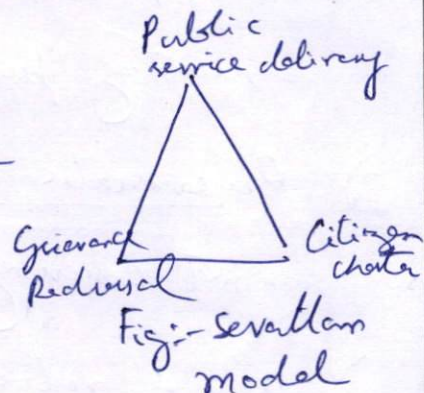 Public
service delivery
Grievance
Redressal
Citizen
charter
Fig:- Sevottam
model